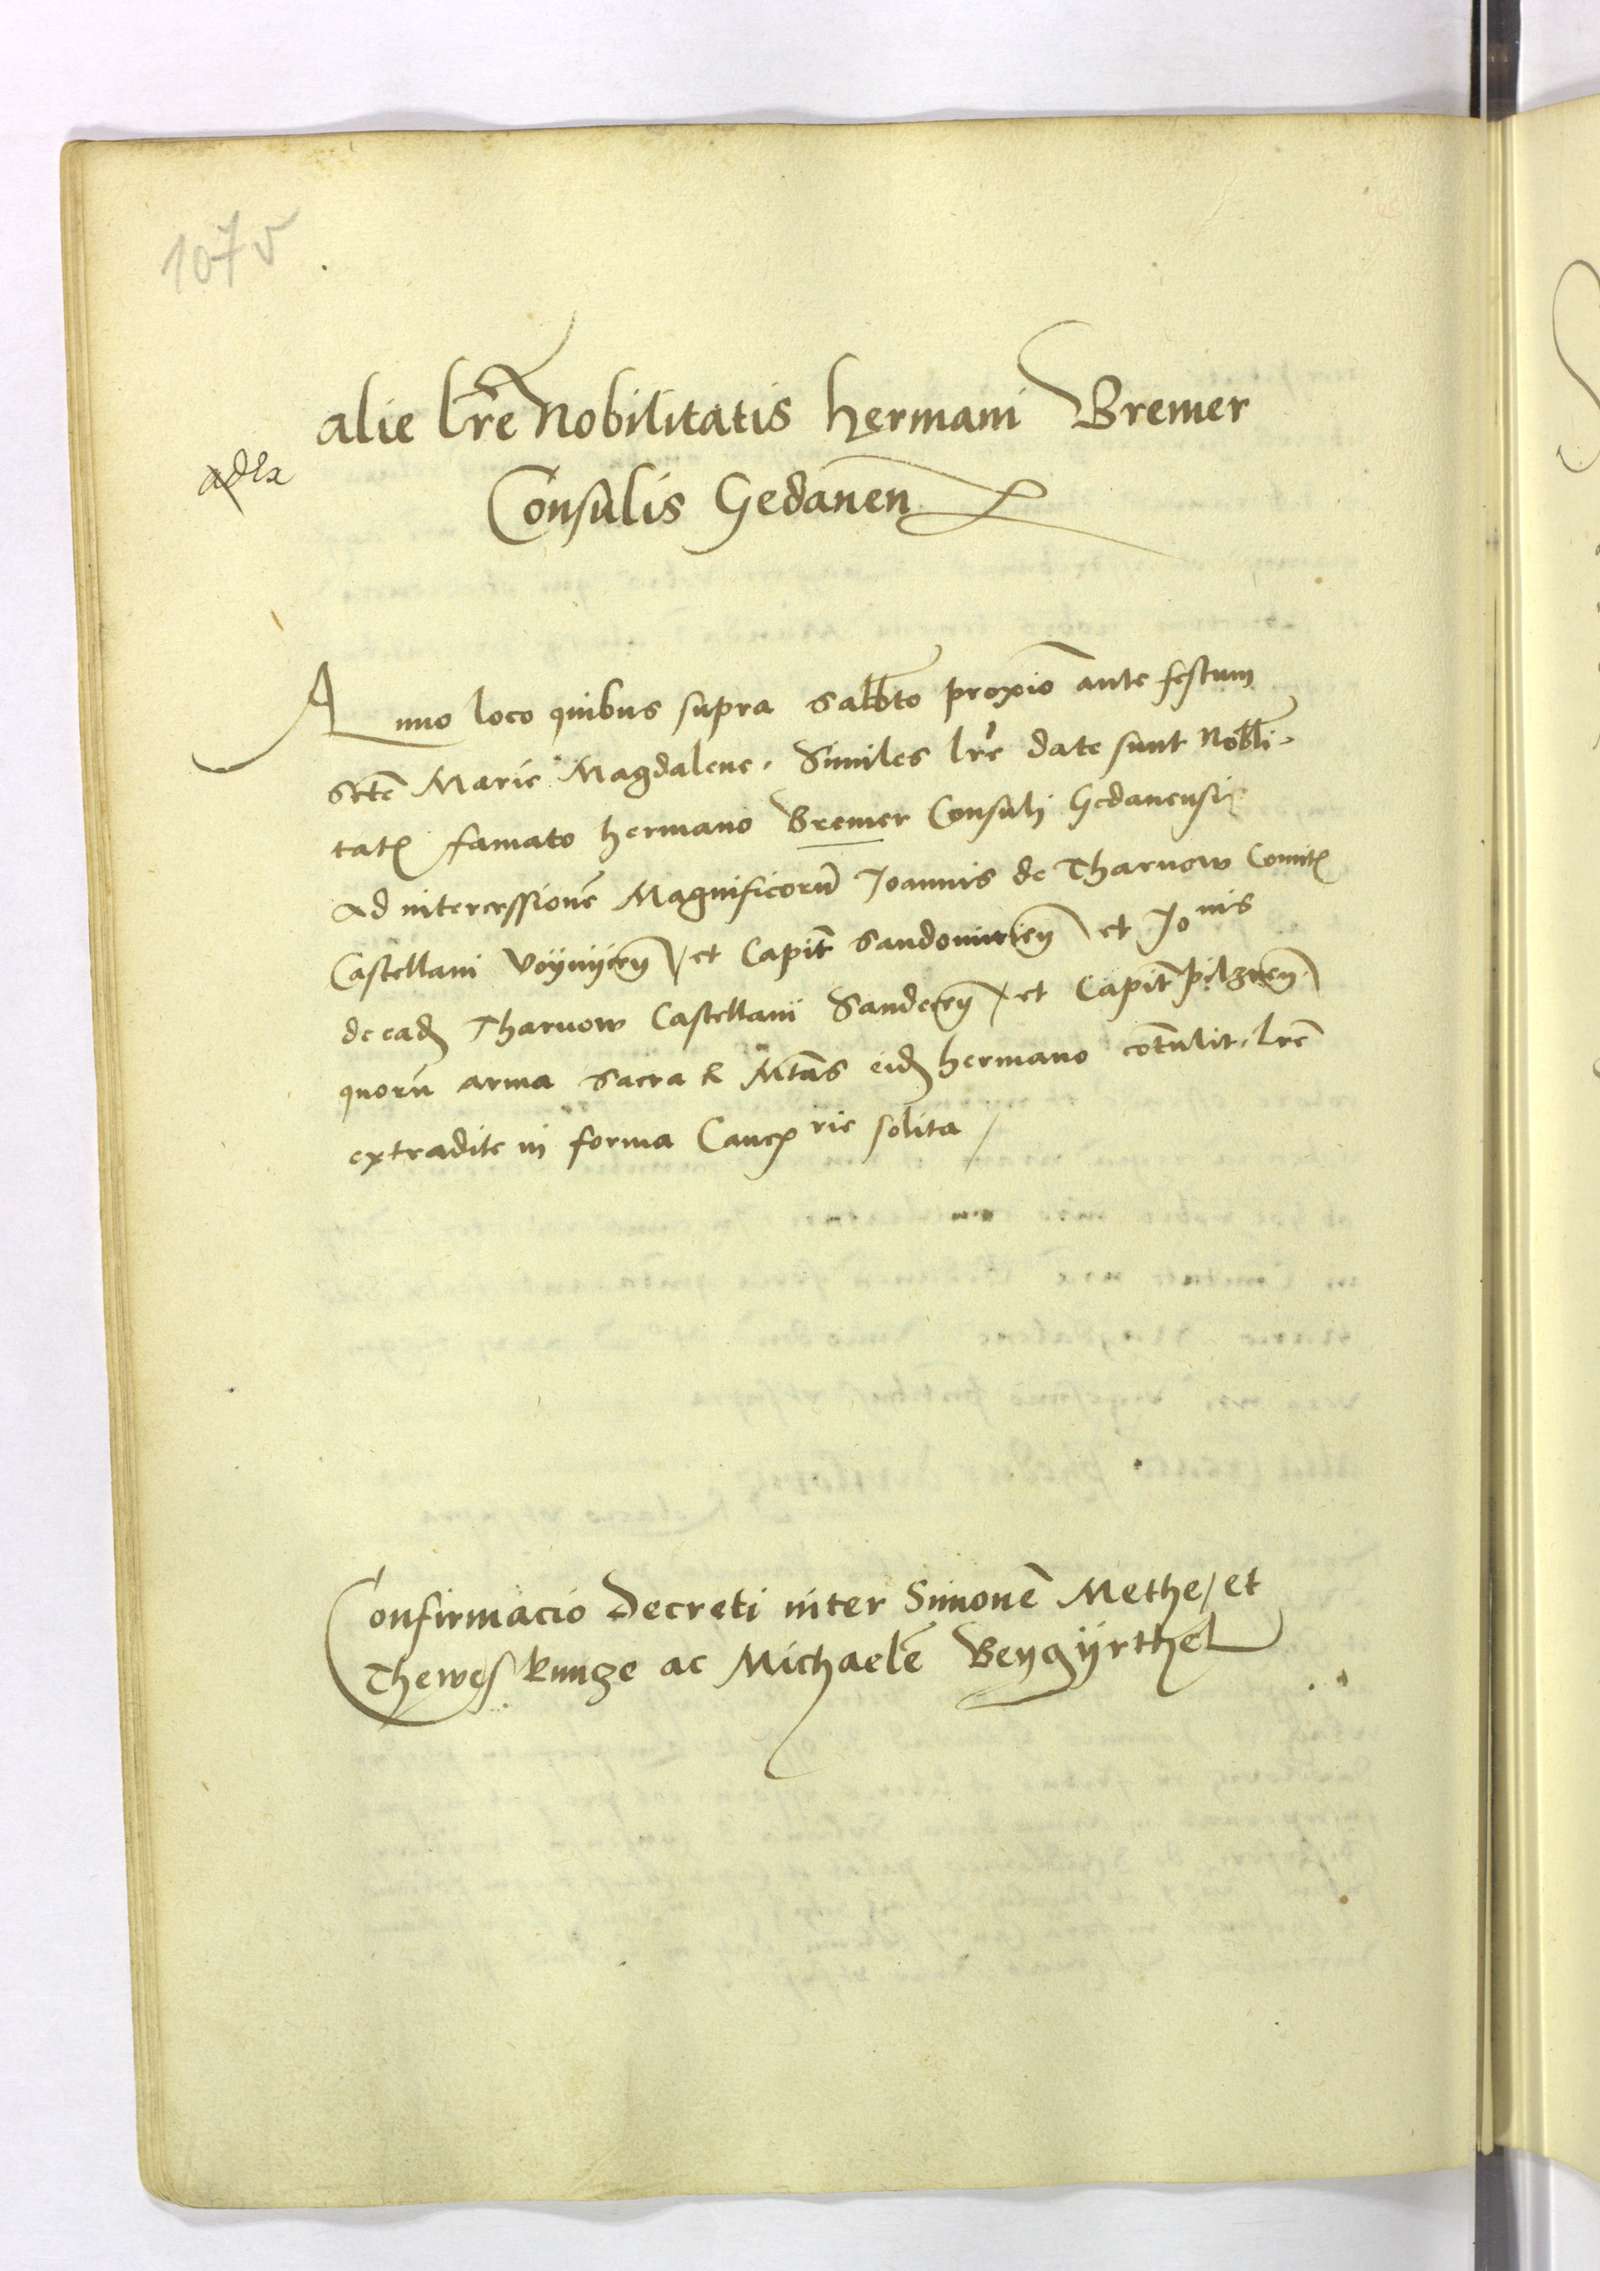 107 v
alie lre Nobilitatis Hermani Bremer
Consulis Gedanen
Anno loco quibus supra Sabbto proximo ante festum
Scte Marie Magdalene. Similes lre date sunt Nobli-
tatis famato Hermano Bremer Consuli Gedanensi
Ad intercessione Magnificoru Joannis de Tharnow Comitis
Castellani Voynycen / et Capit Sandomirien et Jo nis
de ead Tharnow Castellani Sandecen / et Capit pilznen
quoru arma Sacra R Mtas eid Hermano contulit. lre
extradite in forma Cancrie solita /
Confirmacio Decreti inter Simone Methe / et
Thewes kunze ac Michaele Beygyrthel